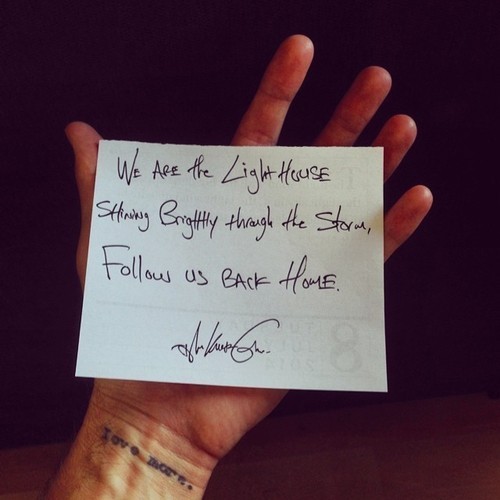 We Are the LightHouse
Shining Brightly through the Storm,
Follow us Back Home.
love more.